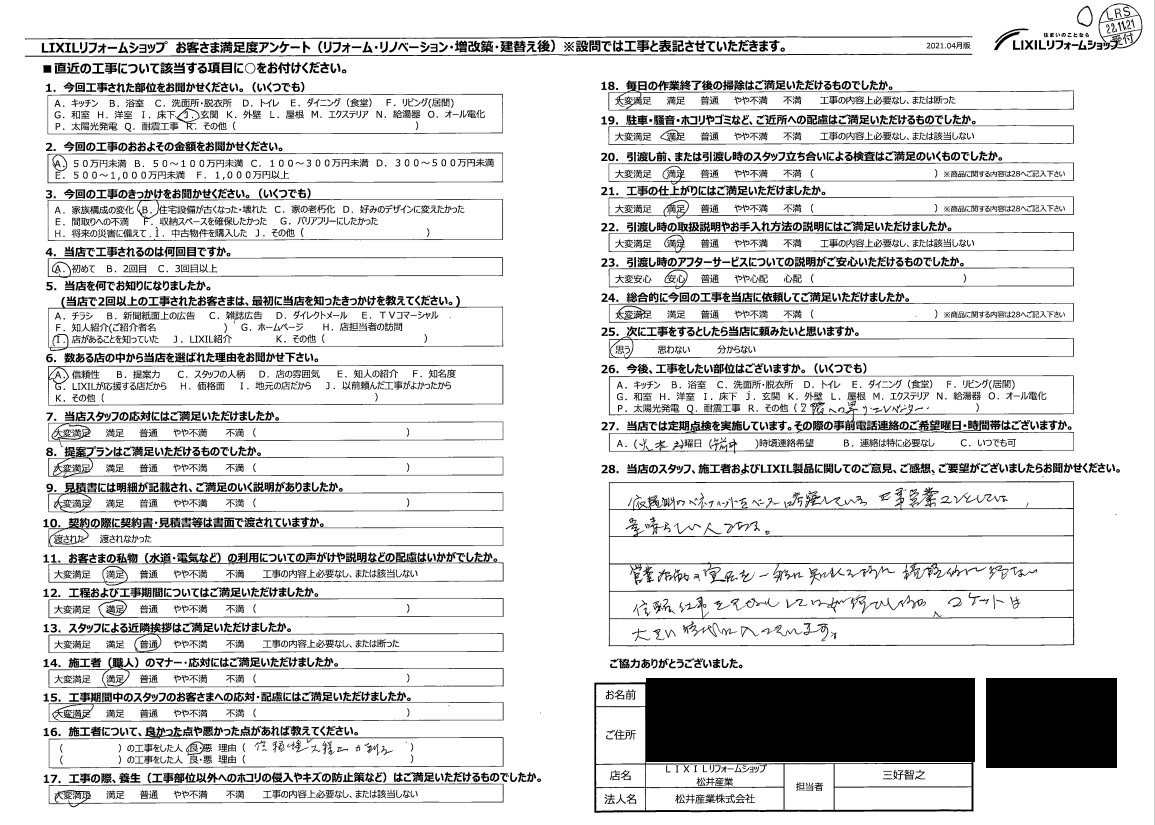 LIXILリフォームショップ お客さま満足度アンケート（リフォーム・リノベーション・増改築・建替え後）※設問では工事と表記させていただきます。
2021.04月版
住まいのことなら
LIXILリフォームショップ
LRS
22.11.21
受付
■直近の工事について該当する項目に○をお付けください。
1．今回工事された部位をお聞かせください。（いくつでも）
A．キッチン B．浴室 C．洗面所・脱衣所 D．トイレ E．ダイニング（食堂） F．リビング(居間)
G．和室 H．洋室 I．床下 J．玄関 K．外壁 L．屋根 M．エクステリア N．給湯器 O．オール電化
P．太陽光発電 Q．耐震工事 R．その他（ ）
2．今回の工事のおおよその金額をお聞かせください。
A．50万円未満 B．50～100万円未満 C．100～300万円未満 D．300～500万円未満
E．500～1,000万円未満 F．1,000万円以上
3．今回の工事のきっかけをお聞かせください。（いくつでも）
A．家族構成の変化 B．住宅設備が古くなった・壊れた C．家の老朽化 D．好みのデザインに変えたかった
E．間取りへの不満 F．収納スペースを確保したかった G．バリアフリーにしたかった
H．将来の災害に備えて I．中古物件を購入した J．その他（ ）
4．当店で工事されるのは何回目ですか。
A．初めて B．2回目 C．3回目以上
5．当店を何でお知りになりましたか。
(当店で2回以上の工事されたお客さまは、最初に当店を知ったきっかけを教えてください。)
A．チラシ B．新聞紙面上の広告 C．雑誌広告 D．ダイレクトメール E．TVコマーシャル
F．知人紹介(ご紹介者名 ) G．ホームページ H．店担当者の訪問
I．店があることを知っていた J．LIXIL紹介 K．その他（ ）
6．数ある店の中から当店を選ばれた理由をお聞かせ下さい。
A．信頼性 B．提案力 C．スタッフの人柄 D．店の雰囲気 E．知人の紹介 F．知名度
G．LIXILが応援する店だから H．価格面 I．地元の店だから J．以前頼んだ工事がよかったから
K．その他（ ）
7．当店スタッフの応対にはご満足いただけましたか。
大変満足 満足 普通 やや不満 不満（ ）
8．提案プランはご満足いただけるものでしたか。
大変満足 満足 普通 やや不満 不満（ ）
9．見積書には明細が記載され、ご満足のいく説明がありましたか。
大変満足 満足 普通 やや不満 不満（ ）
10．契約の際に契約書・見積書等は書面で渡されていますか。
渡された 渡されなかった
11．お客さまの私物（水道・電気など）の利用についての声がけや説明などの配慮はいかがでしたか。
大変満足 満足 普通 やや不満 不満 工事の内容上必要なし、または該当しない
12．工程および工事期間についてはご満足いただけましたか。
大変満足 満足 普通 やや不満 不満（ ）
13．スタッフによる近隣挨拶はご満足いただけましたか。
大変満足 満足 普通 やや不満 不満 工事の内容上必要なし、または断った
14．施工者（職人）のマナー・応対にはご満足いただけましたか。
大変満足 満足 普通 やや不満 不満（ ）
15．工事期間中のスタッフのお客さまへの応対・配慮にはご満足いただけましたか。
大変満足 満足 普通 やや不満 不満（ ）
16．施工者について、良かった点や悪かった点があれば教えてください。
（ ）の工事をした人 良・悪 理由（ ）
（ ）の工事をした人 良・悪 理由（ ）
17．工事の際、養生（工事部位以外へのホコリの侵入やキズの防止策など）はご満足いただけるものでしたか。
大変満足 満足 普通 やや不満 不満 工事の内容上必要なし、または該当しない
18．毎日の作業終了後の掃除はご満足いただけるものでしたか。
大変満足 満足 普通 やや不満 不満 工事の内容上必要なし、または断った
19．駐車・騒音・ホコリやゴミなど、ご近所への配慮はご満足いただけるものでしたか。
大変満足 満足 普通 やや不満 不満 工事の内容上必要なし、または該当しない
20．引渡し前、または引渡し時のスタッフ立ち合いによる検査はご満足のいくものでしたか。
大変満足 満足 普通 やや不満 不満（ ）※商品に関する内容は28へご記入下さい
21．工事の仕上がりにはご満足いただけましたか。
大変満足 満足 普通 やや不満 不満（ ）※商品に関する内容は28へご記入下さい
22．引渡し時の取扱説明やお手入れ方法の説明にはご満足いただけましたか。
大変満足 満足 普通 やや不満 不満 工事の内容上必要なし、または該当しない
23．引渡し時のアフターサービスについての説明がご安心いただけるものでしたか。
大変安心 安心 普通 やや心配 心配（ ）
24．総合的に今回の工事を当店に依頼してご満足いただけましたか。
大変満足 満足 普通 やや不満 不満（ ）※商品に関する内容は28へご記入下さい
25．次に工事をするとしたら当店に頼みたいと思いますか。
思う 思わない 分からない
26．今後、工事をしたい部位はございますか。（いくつでも）
A．キッチン B．浴室 C．洗面所・脱衣所 D．トイレ E．ダイニング（食堂） F．リビング(居間)
G．和室 H．洋室 I．床下 J．玄関 K．外壁 L．屋根 M．エクステリア N．給湯器 O．オール電化
P．太陽光発電 Q．耐震工事 R．その他（2階への昇りエレベーター ）
27．当店では定期点検を実施しています。その際の事前電話連絡のご希望曜日・時間帯はございますか。
A．（ ）曜日（午前中）時頃連絡希望 B．連絡は特に必要なし C．いつでも可
28．当店のスタッフ、施工者およびLIXIL製品に関してのご意見、ご感想、ご要望がございましたらお聞かせください。
素晴らしい人である。
大きい時代に入っています。
ご協力ありがとうございました。
お名前
ご住所
店名 LIXILリフォームショップ 松井産業 担当者 三好智之
法人名 松井産業株式会社